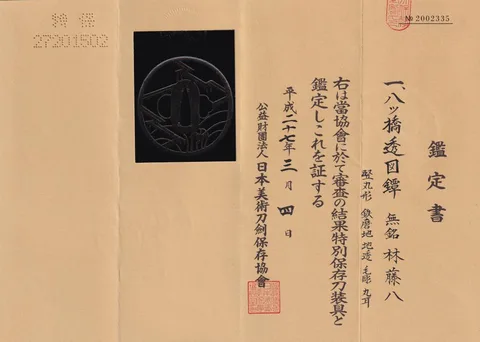 № 2002335
鑑定書
一、八ッ橋透図鐔 無銘 林藤八
竪丸形 鉄磨地 地透 毛彫 丸耳
右は當協會に於て審査の結果特別保存刀装具と
鑑定しこれを証する
平成二十七年三月四日
公益財團法人 日本美術刀劍保存協會
特保
27201502